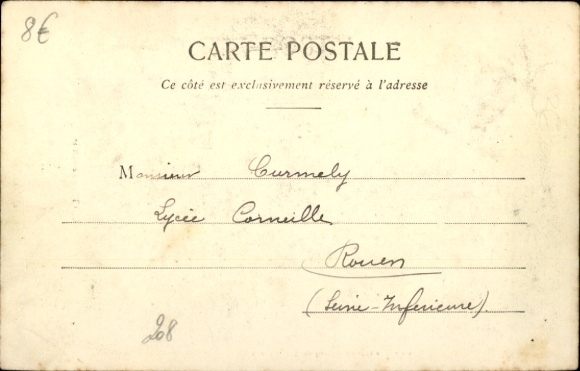 8€
CARTE POSTALE
Ce côté est exclusivement réservé à l'adresse
Monsieur Curmely
Lycée Corneille
Rouen
(Seine-Inférieure).
208